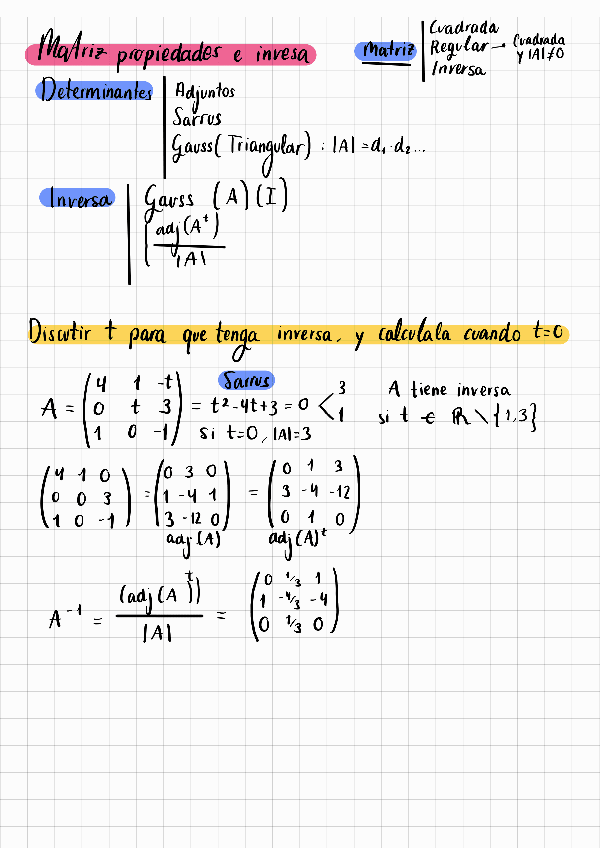 Matriz propiedades e invesa
Matriz | Cuadrada
Regular → Cuadrada y |A|≠0
Inversa
Determinantes | Adjuntos
Sarrus
Gauss (Triangular) : |A| = d₁ · d₂ ...
Inversa | Gauss (A)(I)
adj(Aᵗ)
|A|
Discutir t para que tenga inversa, y calculala cuando t=0
Sarrus
A = (4 1 -t
0 t 3
1 0 -1) = t²-4t+3 = 0 < 3
1
si t=0, |A|=3
A tiene inversa
si t ∈ ℝ \ {1,3}
(4 1 0
0 0 3
1 0 -1)
= (0 3 0
1 -4 1
3 -12 0)
adj(A)
= (0 1 3
3 -4 -12
0 1 0)
adj(A)ᵗ
A⁻¹ = (adj(A)ᵗ)
|A|
= (0 1/3 1
1 -4/3 -4
0 1/3 0)